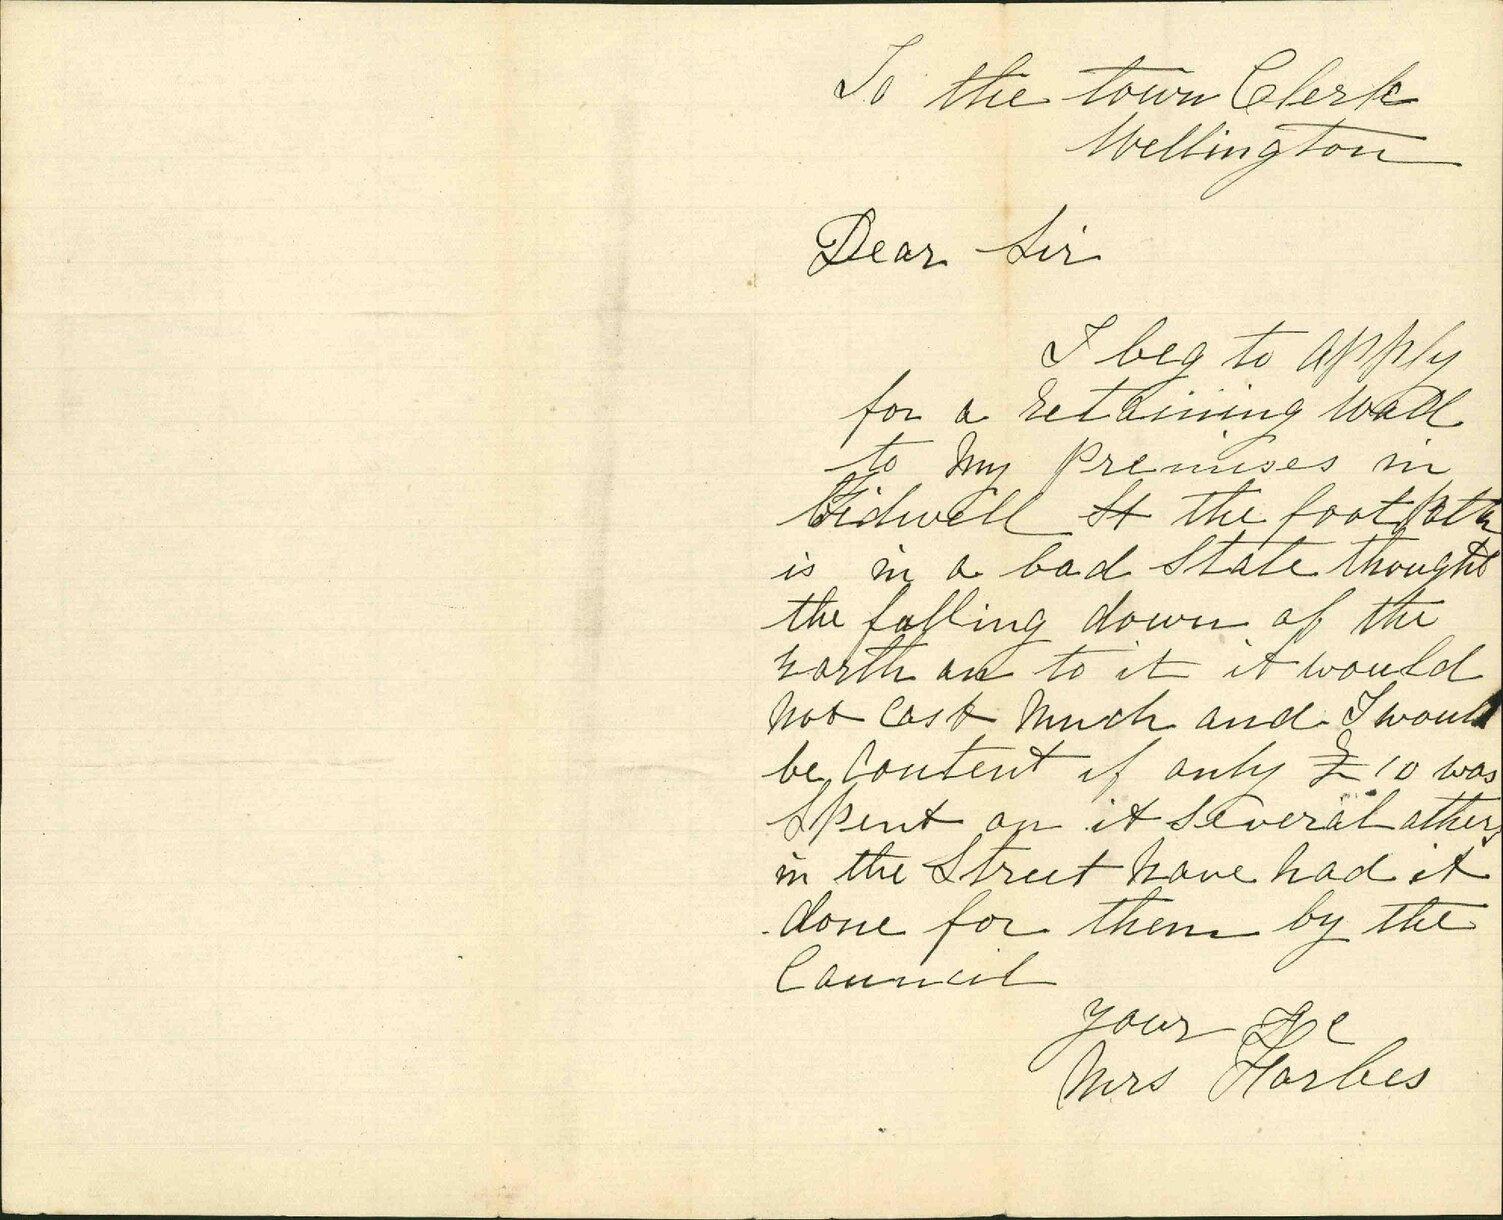 To the town Clerk
Wellington
Dear Sir
I beg to apply
for a retaining wall
to my premises in
Tidwell St the foot path
is in a bad State thought
the falling down of the
earth on to it it would
not cost much and I would
be content if only £10 was
Spent on it several others
in the Street have had it
done for them by the
Council
Your &c
Mrs Forbes